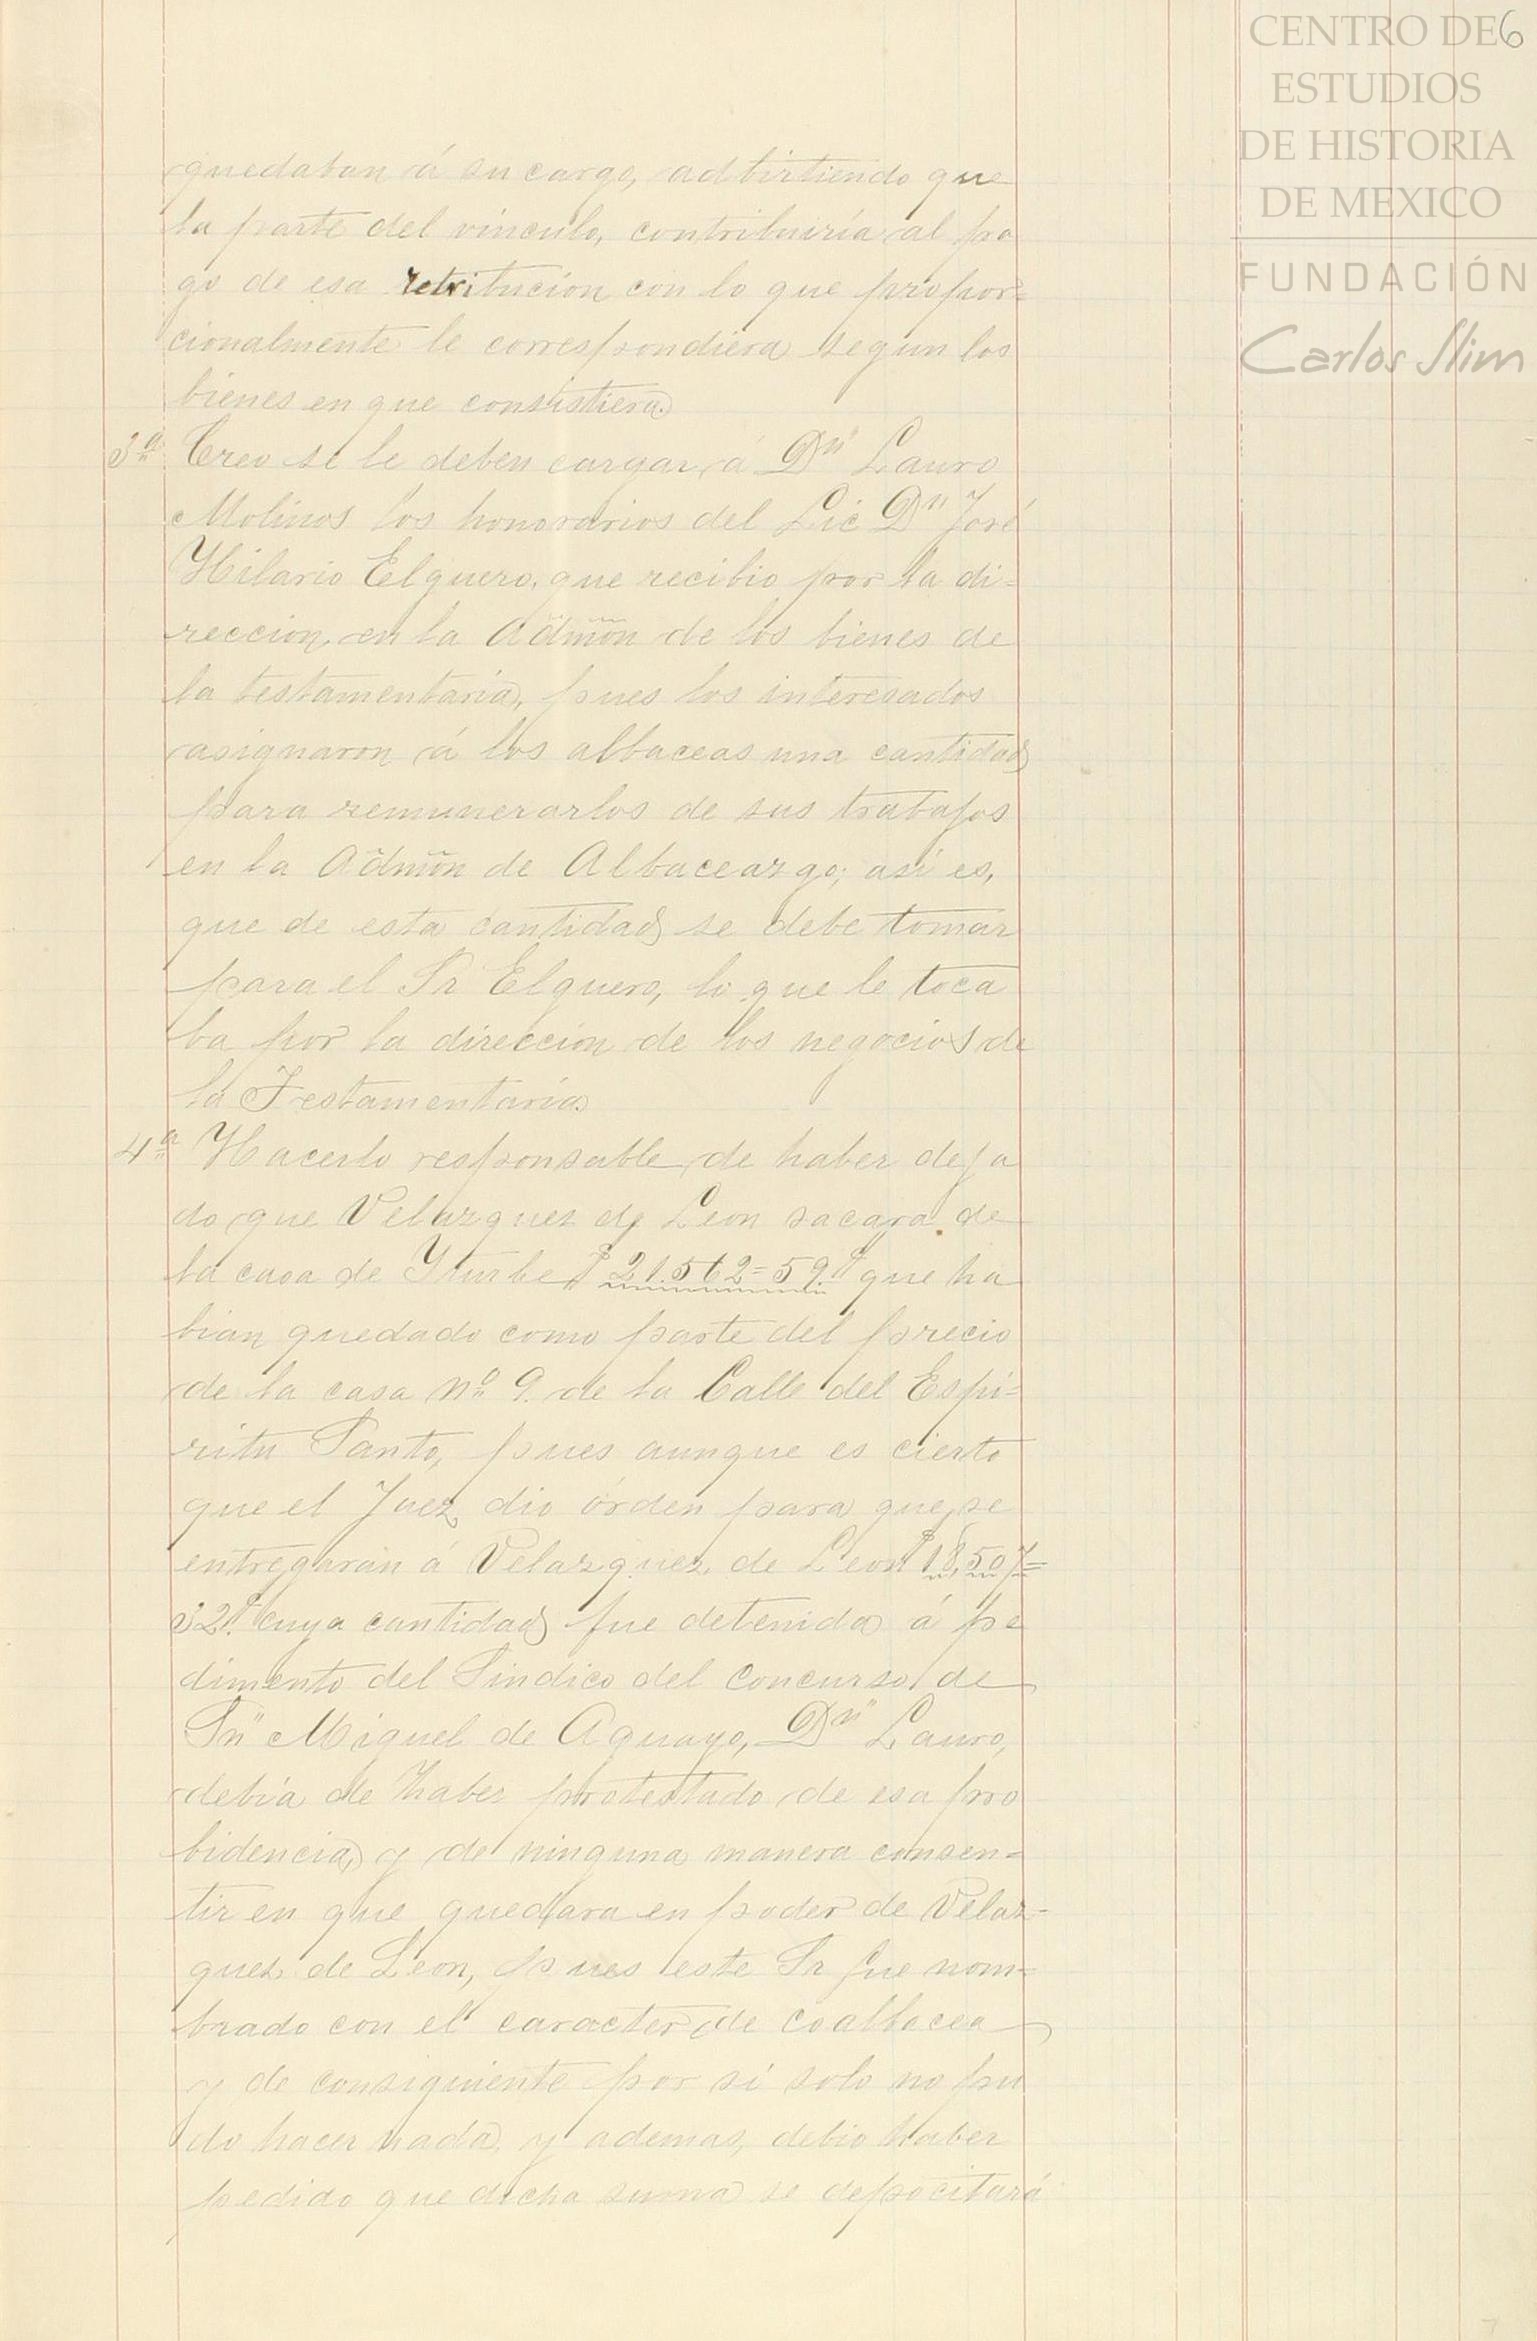 CENTRO DE 6
ESTUDIOS
DE HISTORIA
DE MEXICO
FUNDACIÓN
Carlos Slim
quedaban á su cargo, adbirtiendo que
la parte del vinculo, contribuiría al pa
go de esa retribucion con lo que propor=
cionalmente le correspondiera segun los
bienes en que consistiera.
3ª Creo se le deben cargar á Dn Lauro
Molinos los honorarios del Lic Dn José
Hilario Elguero, que recibio por la di=
reccion en la Admon de los bienes de
la testamentaria, pues los interesados
asignaron á los albaceas una cantidad
para remunerarlos de sus trabajos
en la Admon de Albaceazgo; asi es,
que de esta cantidad se debe tomar
para el Sr Elguero, lo que le toca
ba por la direccion de los negocios de
la Testamentaria
4ª Hacerlo responsable de haber deja
do que Velazquez de Leon sacara de
la casa de Yturbe $ 21.562=59. que ha
bian quedado como parte del precio
de la casa nº 9. de la Calle del Espi=
ritu Santo, pues aunque es cierto
que el Juez dio órden para que se
entregaran á Velazquez de Leon $18,507=
32. cuya cantidad fue detenida á pe
dimento del Sindico del concurso de
Sn Miguel de Aguayo, Dn Lauro,
debia de haber protestado de esa pro
bidencia, y de ninguna manera consen=
tir en que quedara en poder de Velaz=
quez de Leon, pues este Sr fue nom=
brado con el caracter de coalbacea
y de consiguiente por si solo no pu
do hacer nada, y ademas, debio haber
pedido que dicha suma se depocitará